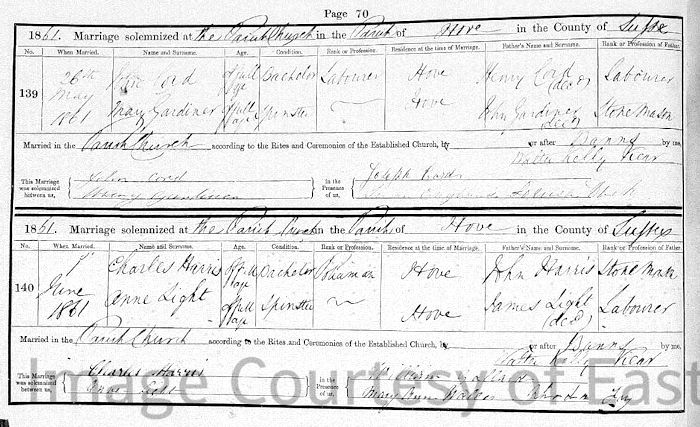 Page 70
1861. Marriage solemnized at the Parish Church in the Parish of Hove in the County of Sussex
No. When Married. Name and Surname. Age. Condition. Rank or Profession. Residence at the time of Marriage. Father's Name and Surname. Rank or Profession of Father.
139 26th May 1861 John Cord of full age Bachelor Labourer Hove Henry Cord (decd) Labourer
Mary Gardiner of full age Spinster Hove John Gardiner (decd) Stone Mason
Married in the Parish Church according to the Rites and Ceremonies of the Established Church, by or after Banns by me,
Walter Kelly Vicar
This Marriage was solemnized between us, John Cord
Mary Gardiner
in the Presence of us, Joseph
1861. Marriage solemnized at the Parish Church in the Parish of Hove in the County of Sussex
No. When Married. Name and Surname. Age. Condition. Rank or Profession. Residence at the time of Marriage. Father's Name and Surname. Rank or Profession of Father.
140 1st June 1861 Charles Harris of full age Bachelor Policeman Hove John Harris Stone Mason
Anne Light of full age Spinster Hove James Light (decd) Labourer
Married in the Parish Church according to the Rites and Ceremonies of the Established Church, by or after Banns by me,
Walter Kelly Vicar
This Marriage was solemnized between us, Charles Harris
in the Presence of us, William
Mary Ann Rhoda
Image Courtesy of East